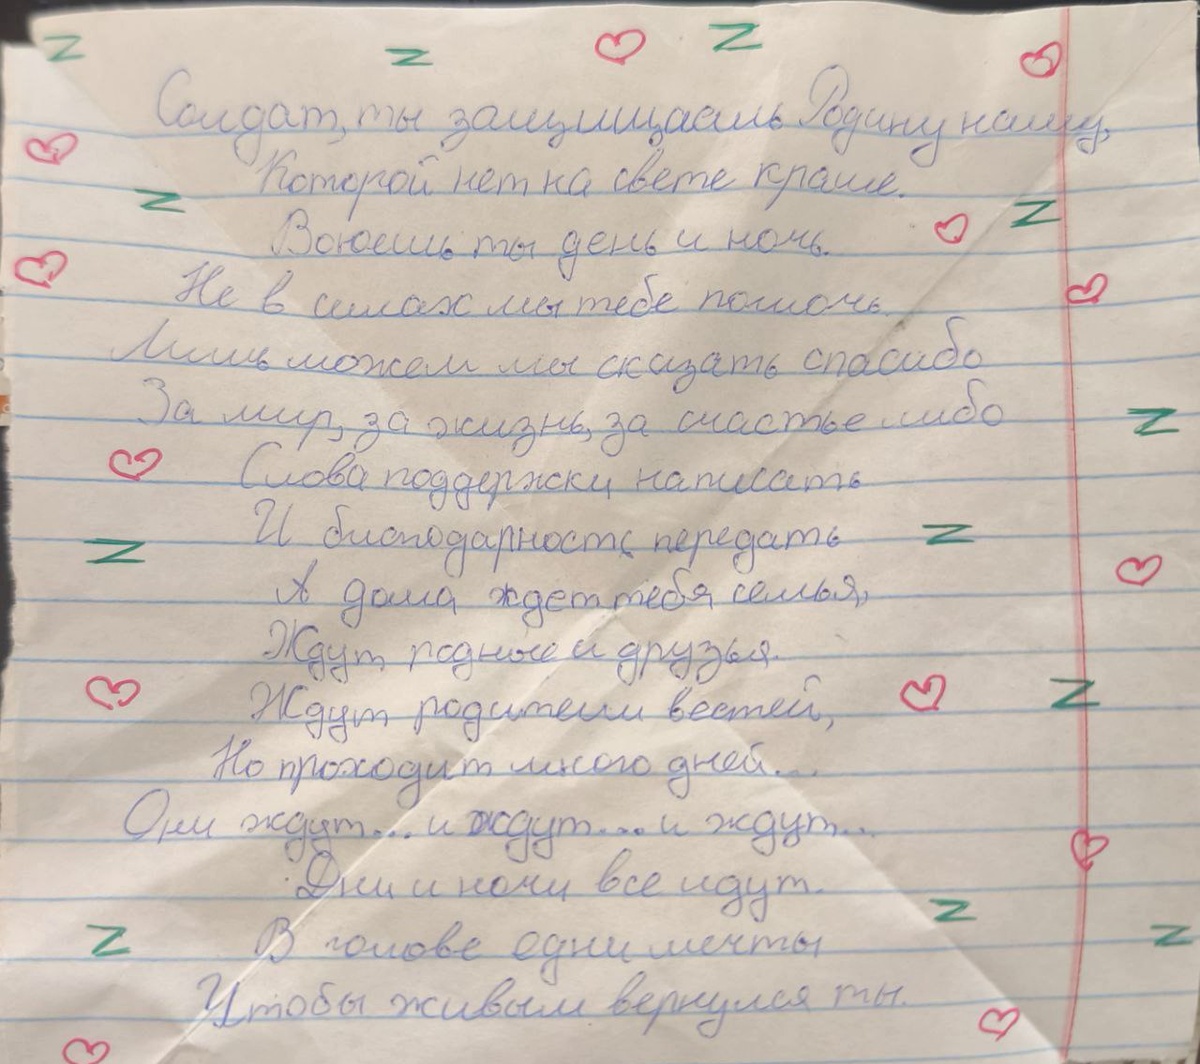 Солдат, ты защищаешь Родину нашу,
Которой нет на свете краше.
Воюешь ты день и ночь.
Не в силах мы тебе помочь.
Лишь можем мы сказать спасибо
За мир, за жизнь, за счастье либо
Слова поддержки написать
И благодарность передать
А дома ждет тебя семья,
Ждут родные и друзья.
Ждут родители вестей,
Но проходит много дней...
Они ждут... и ждут... и ждут...
Дни и ночи все идут.
В голове одни мечты
Чтобы живым вернулся ты.